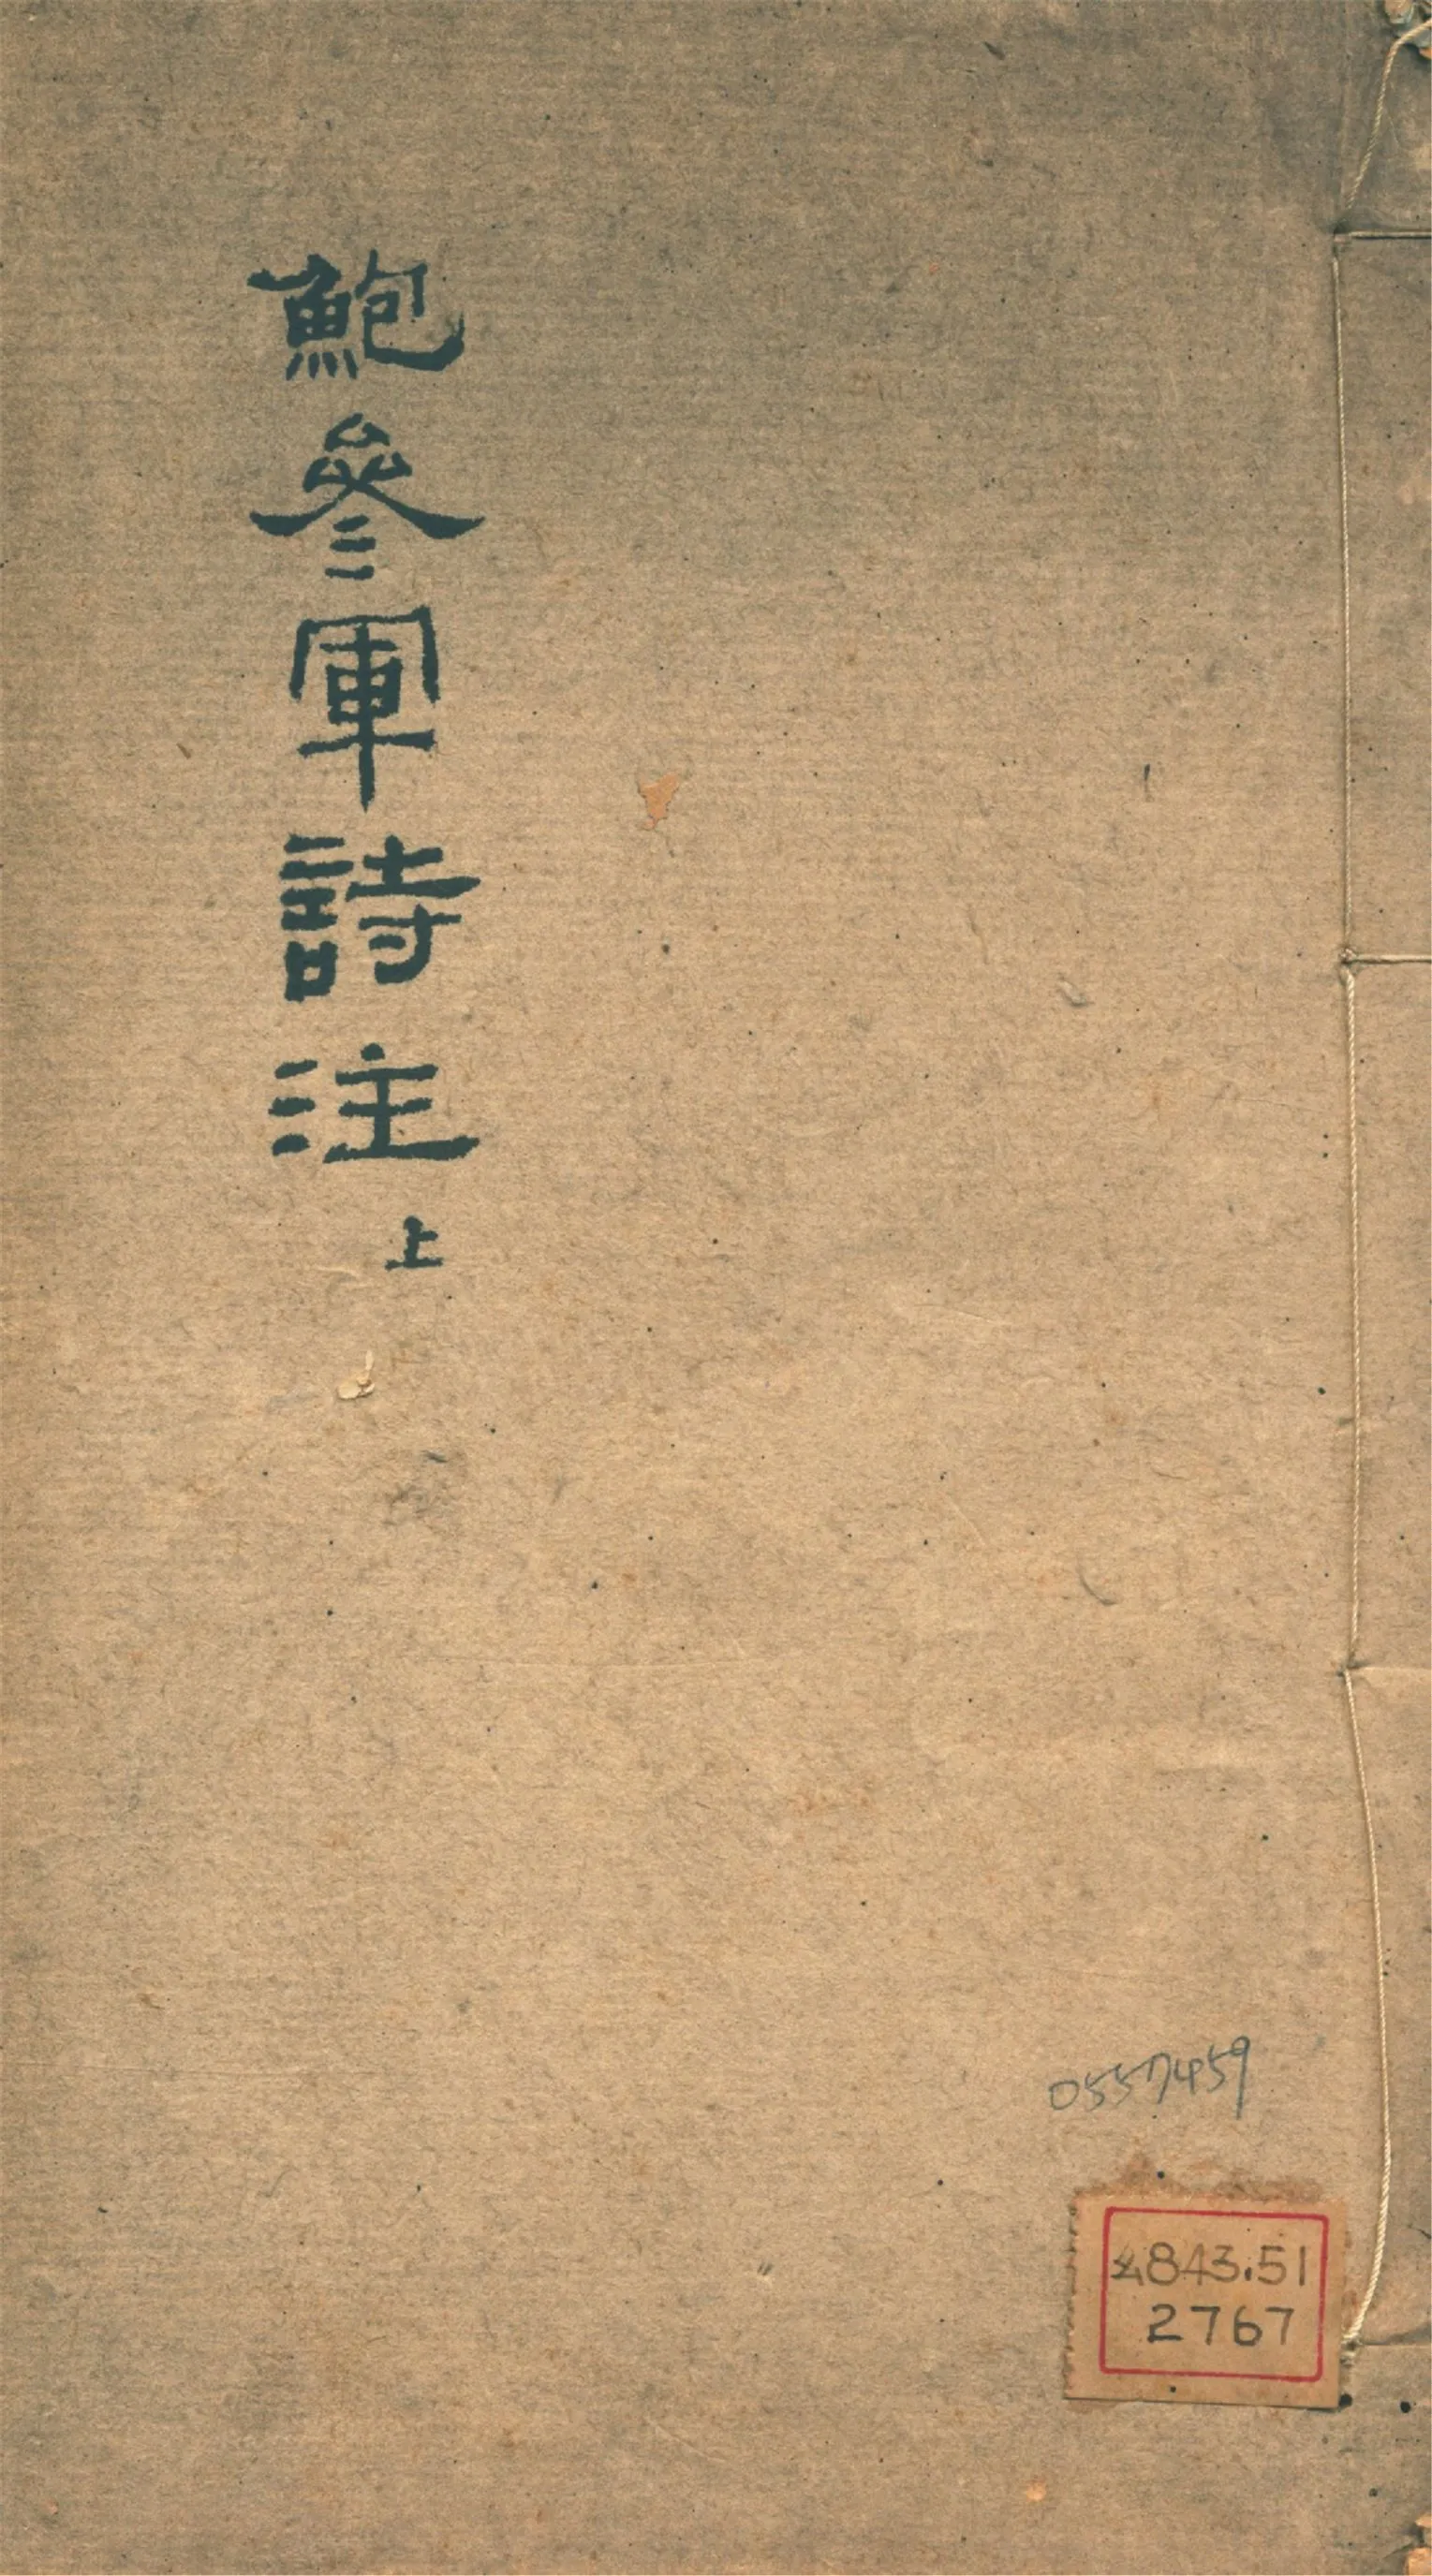 鮑參軍詩注
上
0557459
843.51
2767